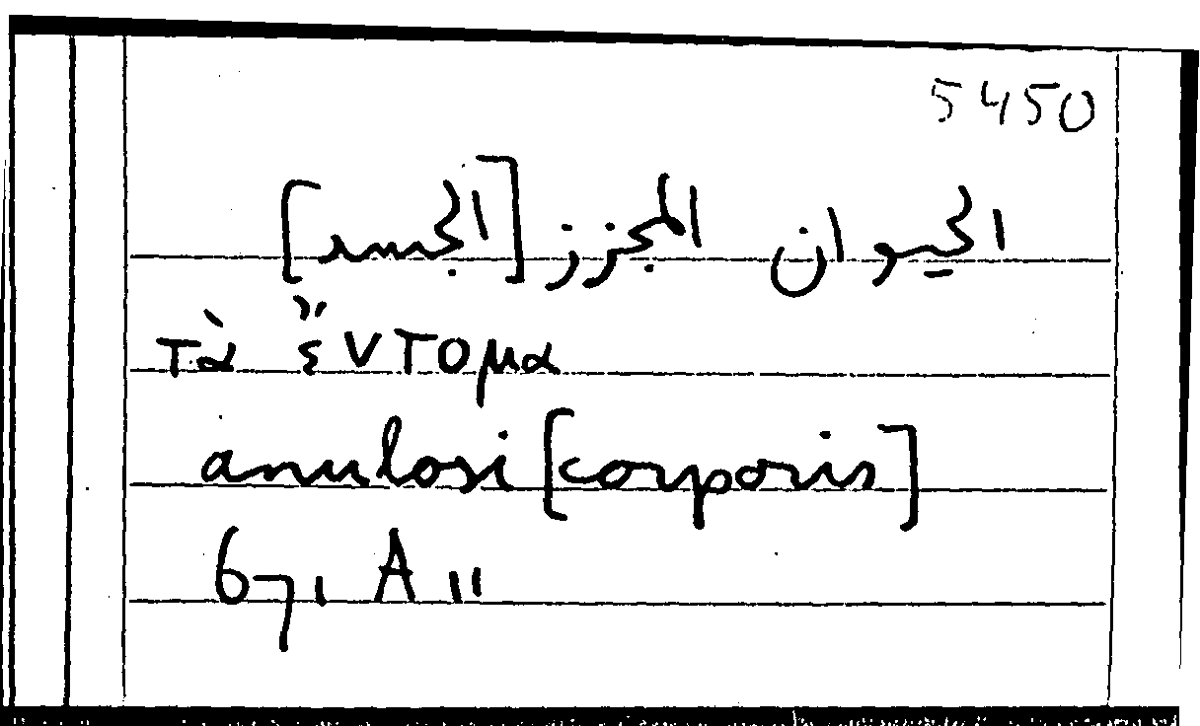 5450
الحيوان المجزز [الجسد]
τὰ ἔντομα
anulosi [corporis]
671 A 11